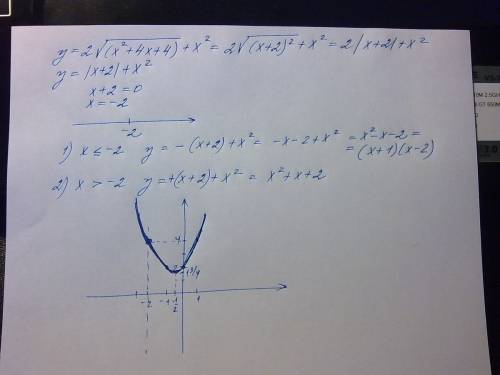 y = 2√(x²+4x+4) + x² = 2√(x+2)² + x² = 2|x+2| + x²
y = |x+2| + x²
x+2 = 0
x = -2
-2
1) x ≤ -2 y = -(x+2) + x² = -x-2+x² = x²-x-2 =
= (x+1)(x-2)
2) x > -2 y = +(x+2) + x² = x²+x+2
4
2
1 3/4
-2 -1 -1/2 1